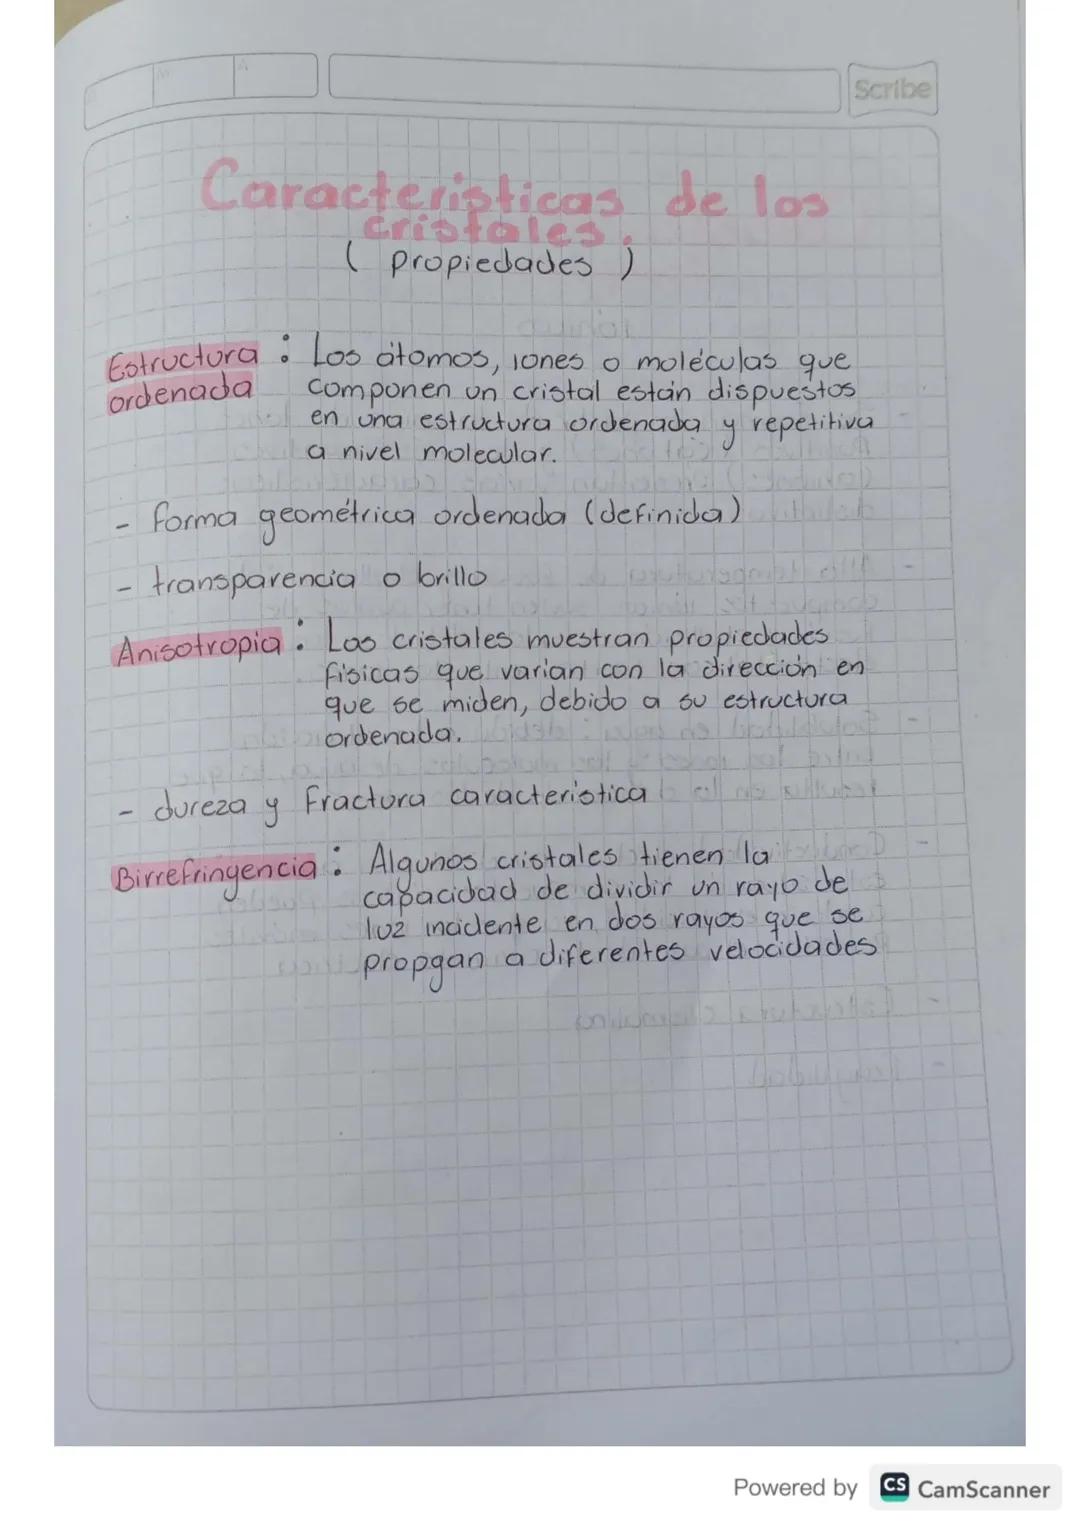 M
A
Scribe
Caracteristicas de los
cristales.
( propiedades )
Estructura : Los átomos, iones o moléculas que
ordenada componen un cristal están dispuestos
en una estructura ordenada y repetitiva
a nivel molecular.
- forma geométrica ordenada (definida)
- transparencia o brillo
Anisotropia : Los cristales muestran propiedades
físicas que varian con la dirección en
que se miden, debido a su estructura
ordenada.
- dureza y fractura caracteristica
Birrefringencia : Algunos cristales tienen la
capacidad de dividir un rayo de
luz incidente en dos rayos que se
propgan a diferentes velocidades
Powered by CS CamScanner